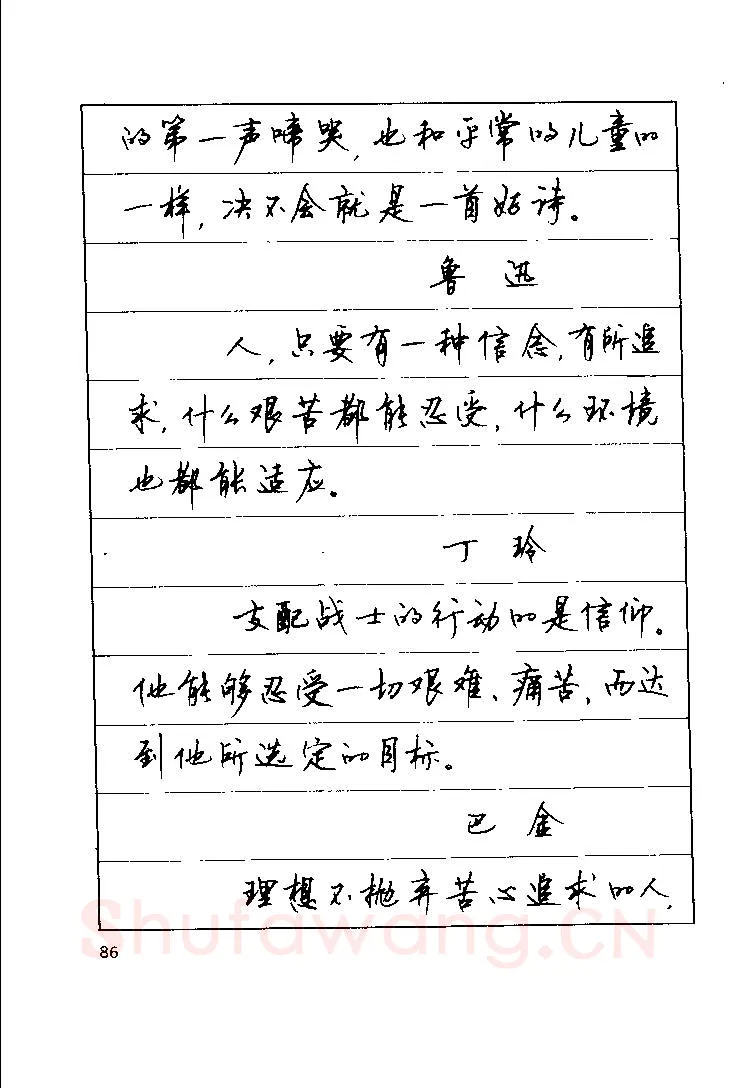 的第一声啼哭,也和平常的儿童的
一样,决不会就是一首好诗。
鲁迅
人,只要有一种信念,有所追
求,什么艰苦都能忍受,什么环境
也都能适应。
丁玲
支配战士的行动的是信仰。
他能够忍受一切艰难、痛苦,而达
到他所选定的目标。
巴金
理想不抛弃苦心追求的人,
Shufawang.CN
86